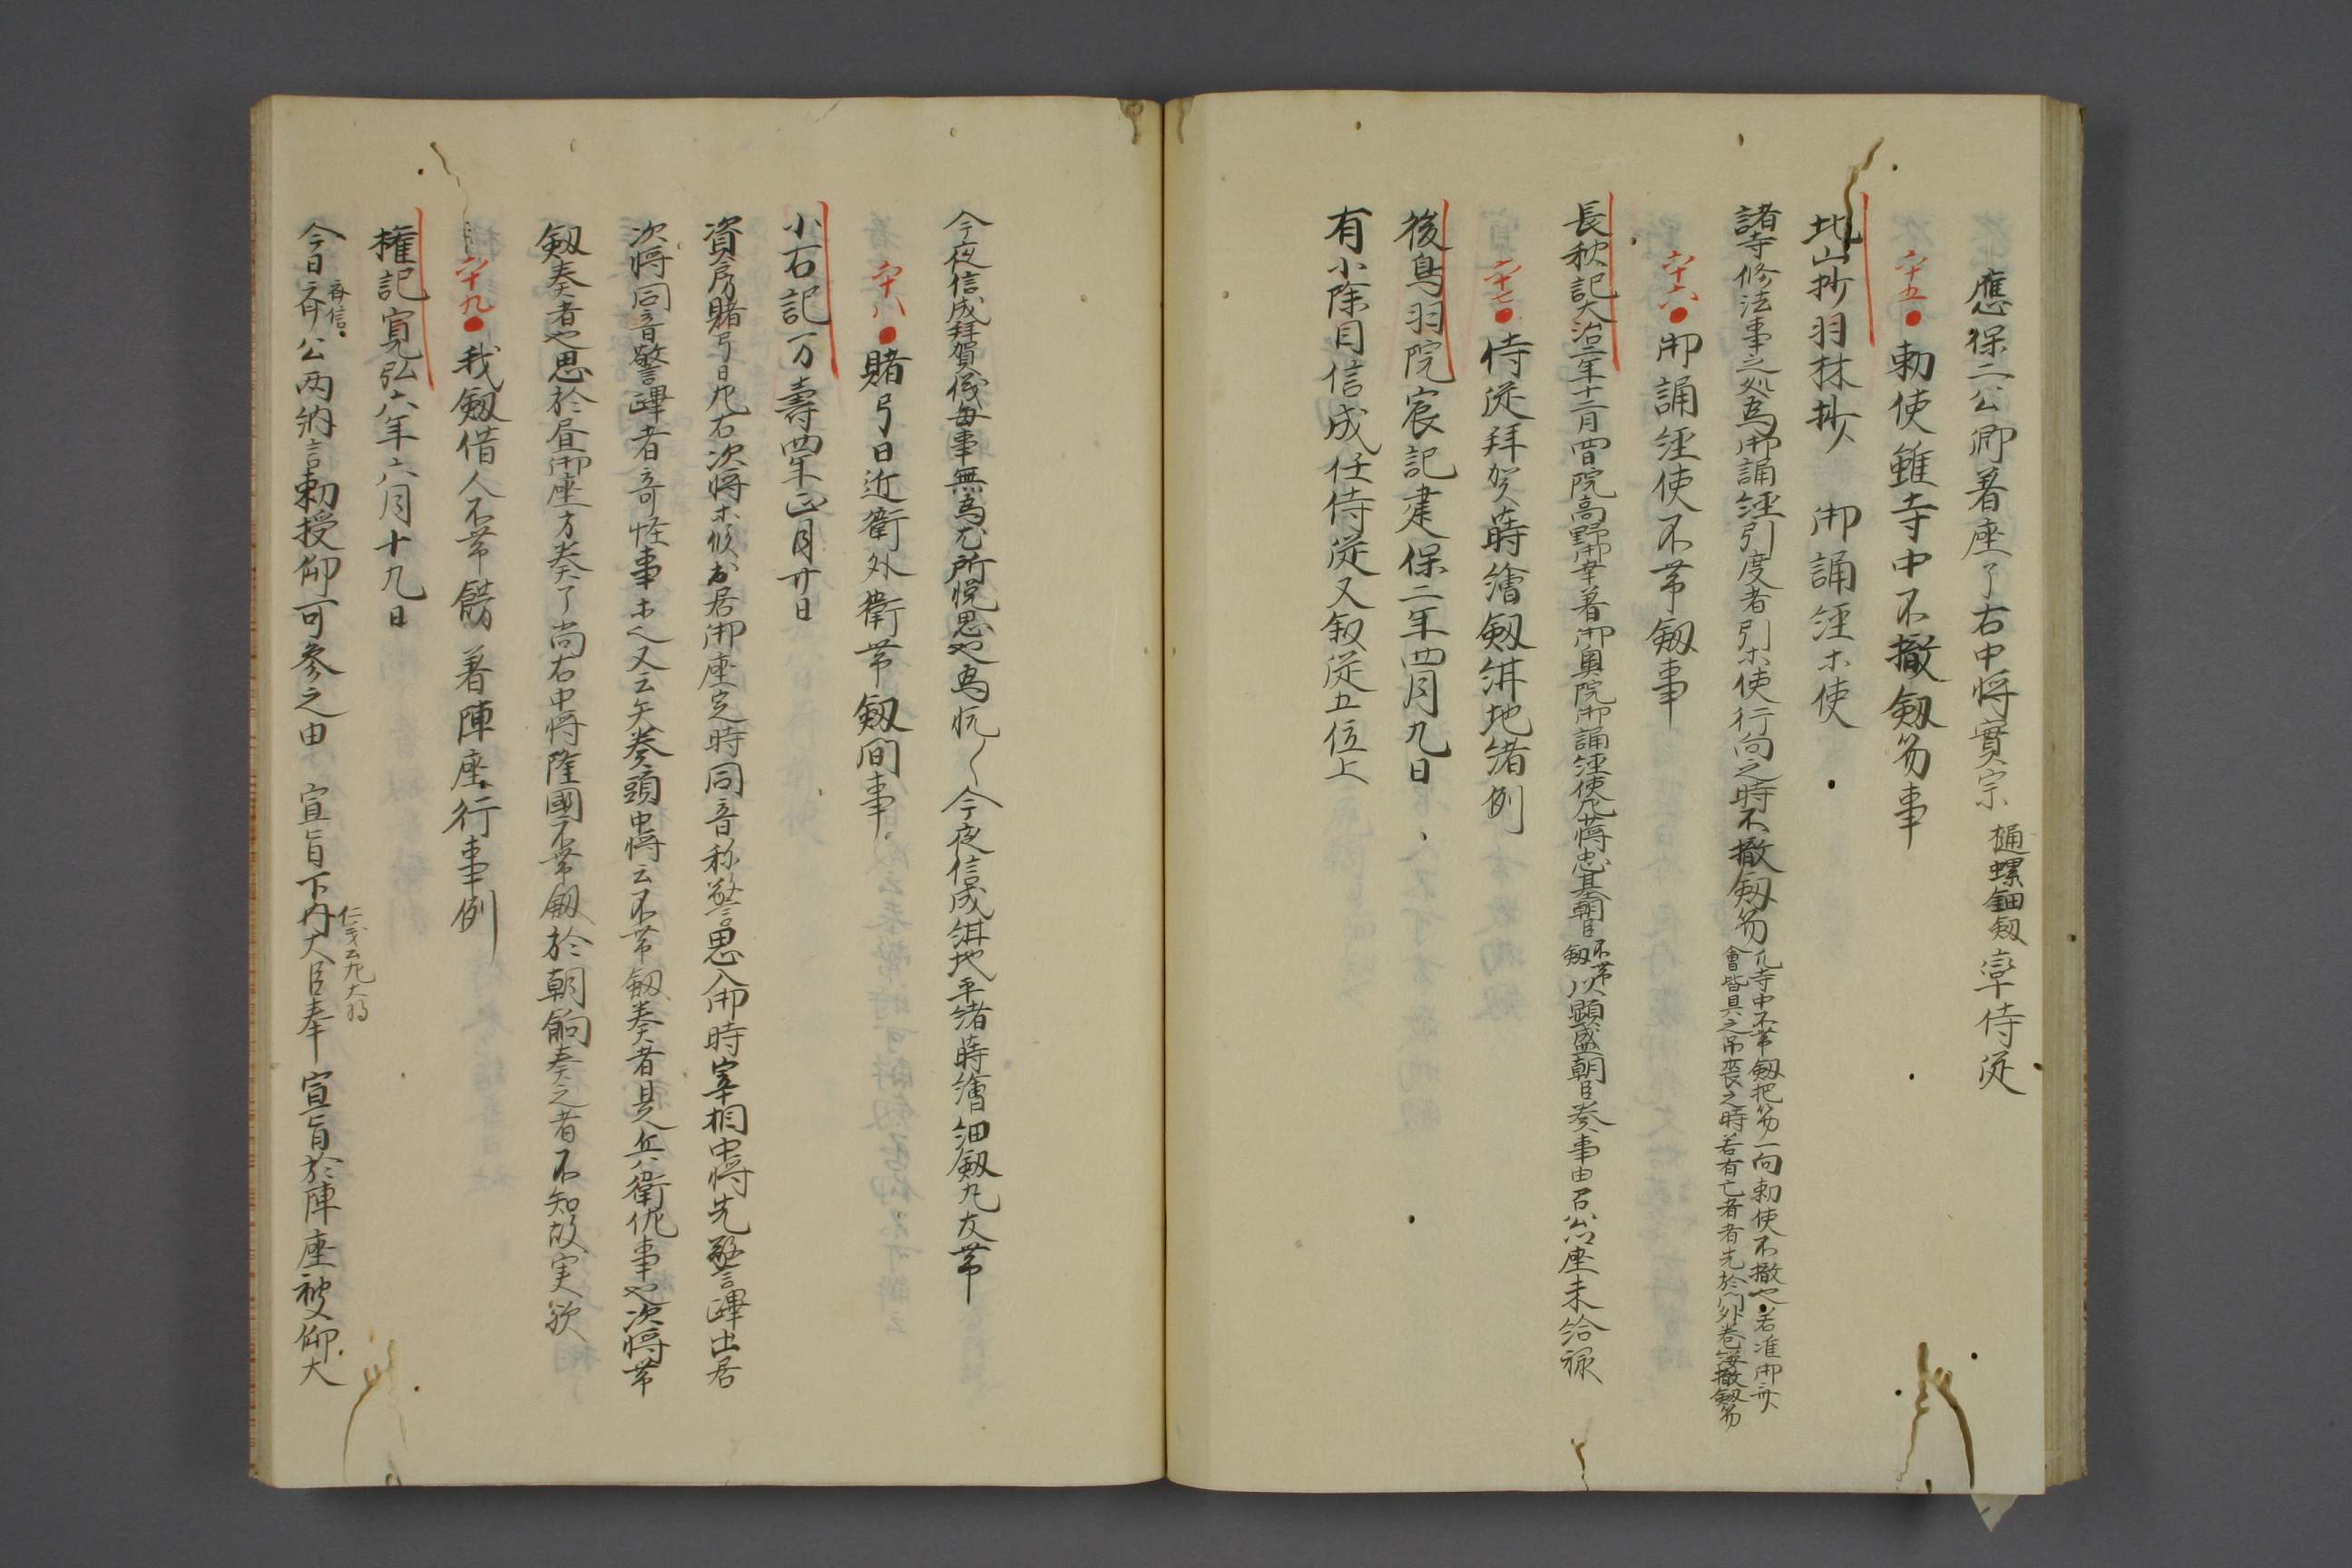 應保二公卿着座了右中将實宗樋螺鈿劔宰侍従
六十五●勅使雖寺中不撤劔笏事
北山抄羽林抄 御誦経木使
諸寺修法事之処為御誦経引度者引木使行向之時不撤劔笏
凡寺中不帯劔把笏一向勅使不撤也若准御斎
會皆具之吊喪之時若有亡者者先於門外巻纓撤劔笏
六十六●御誦経使不帯劔事
長秋記大治二年十一月四日院高野御幸着御奥院御誦経使左少将忠基朝臣不帯劔以顕盛朝臣奏事由召公座未給禄
六十七●侍従拝賀蒔繪劔紺地緒例
後鳥羽院宸記建保二年四月九日
有小除目信成任侍従又叙従五位上
今夜信成拝賀儀毎事無為尤所悦思也為悦〻今夜信成紺地平緒蒔繪細劔丸友帯
六十八●賭弓日近衛外衛帯劔間事
小右記万壽四年正月廿日
資房賭弓日左右次将木候出居御座定時同音称警思入御時宰相中将先警蹕出居
次将同音警蹕者奇恠事木也又云矢奏頭中将云不帯劔奏者是兵衛佐事也次将帯
劔奏者也思於昼御座方奏了尚右中将隆國不帯劔於朝餉奏之者不知故実欤
六十九●我劔借人不帯餝著陣座行事例
権記寛弘六年六月十九日
今日斉斉信公両納言勅授仰可参之由 宣旨下内大臣奉 宣旨於陣座被仰大